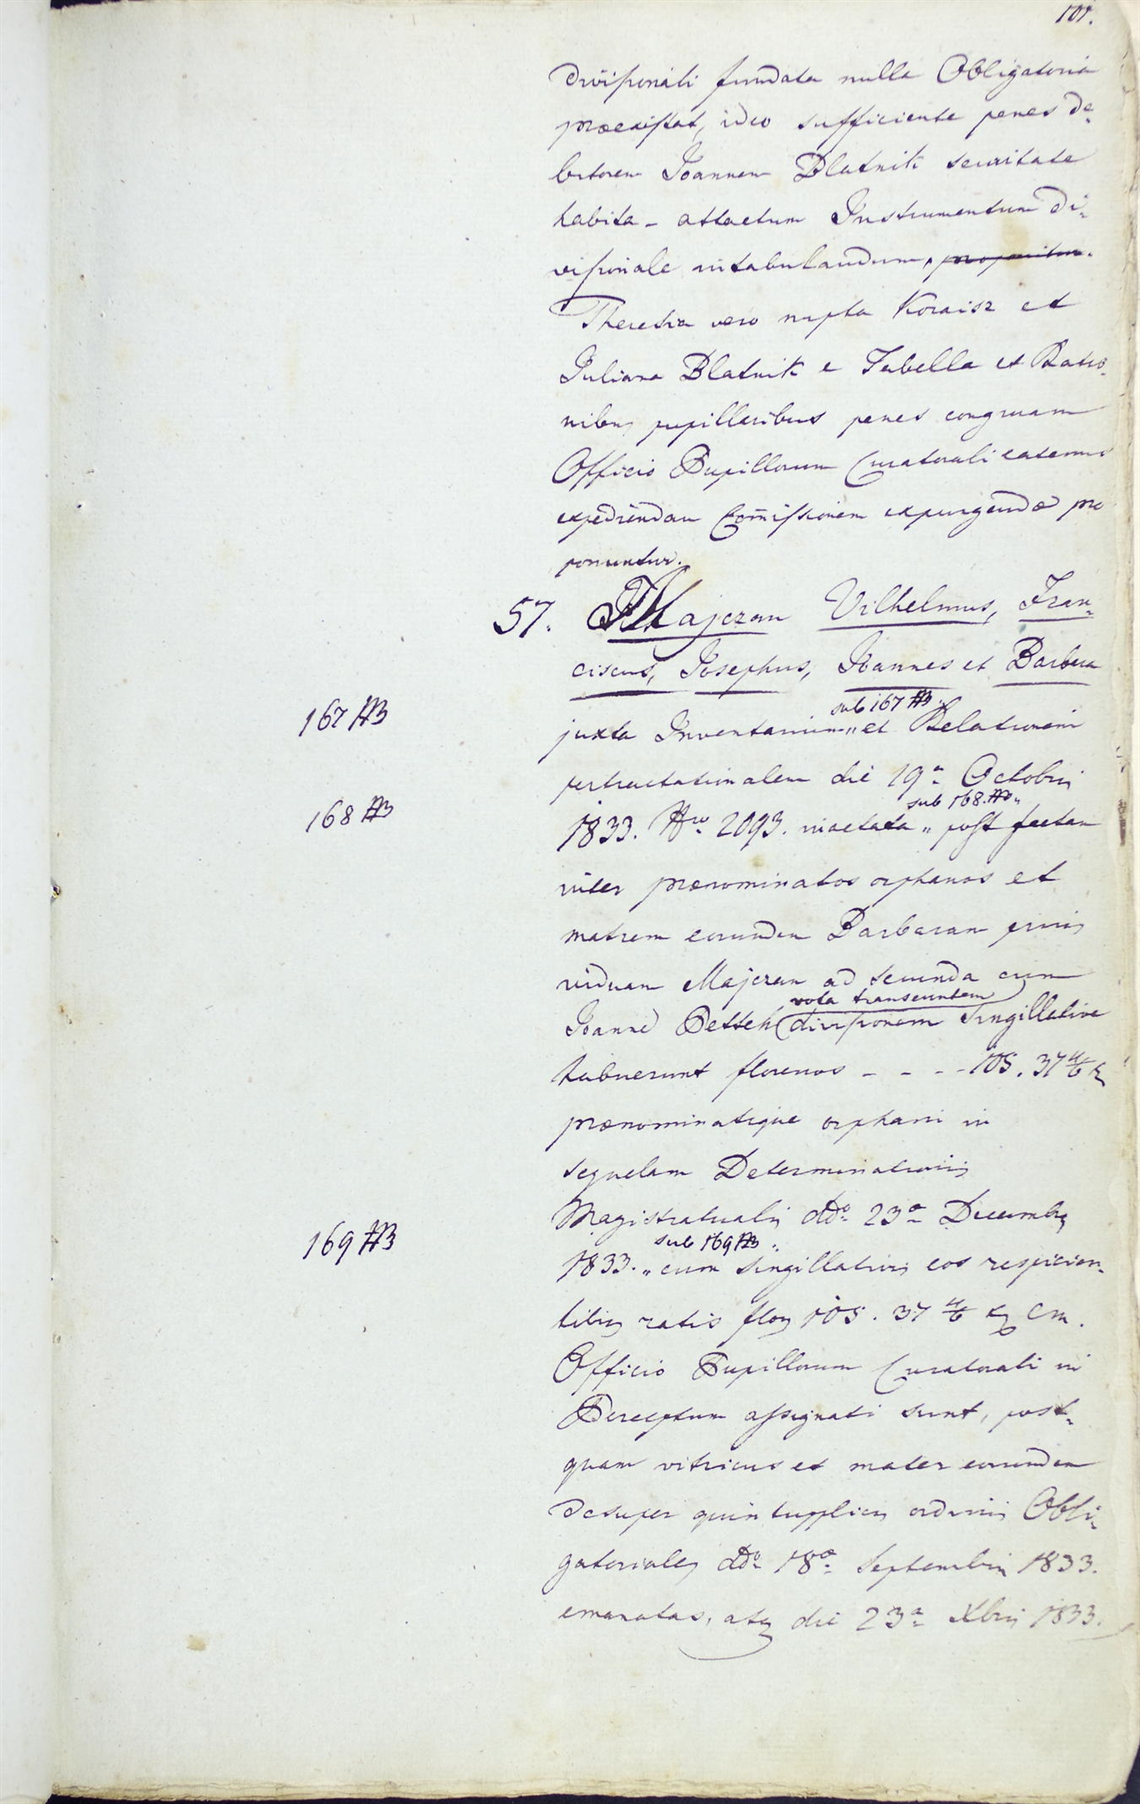 101.
divisionali fundata nulla Obligatoria
praeexistat, ideo sufficiente penes de-
bitorem Joannem Blatnik securitate
habita – attactum Instrumentum di-
visionale intabulandum, proponitur.
Theresia vero nupta Koraisz et
Juliana Blatnik e Tabella et Ratio-
nibus pupillaribus penes congruam
Officio Pupillorum Curatorali eatenus
expediendam Com̄issionem expurgendae pro
ponuntur.
57. Majczan Vilhelmus, Fran-
ciscus, Josephus, Joannes et Barbara
sub 167 ##
167 ## juxta Inventarium „ et Relationem
pertractationalem die 19a Octobris
sub 168 ## „
168 ## 1833. Nro 2093. inactata „ post factam
inter praenominatos orphanos et
matrem eorundem Barbaram prius
viduam Majczan ad secunda cum
vota transeuntem
Joanne Pettek divisionem singillative
habuerunt florenos - - - - 105. 37 4/6 x
praenominatique orphani in
sequelam Determinationis
Magistratualis ddo 23a Decembris
sub 169 ## „
169 ## 1833. „ cum singillativis eos respicien-
tibus ratis flos 105. 37 4/6 x CM.
Officio Pupillorum Curatorali in
Perceptum assignati sunt, post-
quam vitricus et mater eorundem
desuper quintupplicis ordinis Obli-
gatoriales ddo 18a Septembris 1833.
emanatas, atq die 23a Xbris 1833.